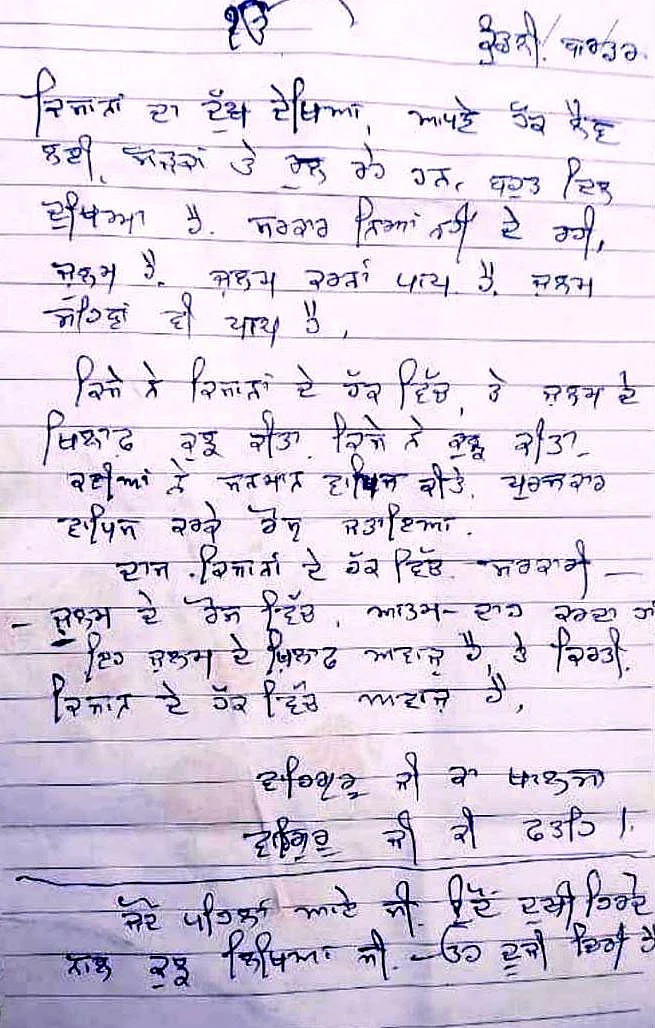 ੴ
ਕੁੰਡਲੀ ਬਾਰਡਰ
ਕਿਸਾਨਾਂ ਦਾ ਦੁੱਖ ਦੇਖਿਆ, ਆਪਣੇ ਹੱਕ ਲੈਣ
ਲਈ, ਸੜਕਾਂ ਤੇ ਰੁਲ ਰਹੇ ਹਨ. ਬਹੁਤ ਦਿਲ
ਦੁਖਿਆ ਹੈ. ਸਰਕਾਰ ਨਿਆਂ ਨਹੀਂ ਦੇ ਰਹੀ,
ਜੁਲਮ ਹੈ. ਜੁਲਮ ਕਰਨਾਂ ਪਾਪ ਹੈ. ਜੁਲਮ
ਸਹਿਣਾਂ ਵੀ ਪਾਪ ਹੈ,
ਕਿਸੇ ਨੇ ਕਿਸਾਨਾਂ ਦੇ ਹੱਕ ਵਿੱਚ, ਤੇ ਜੁਲਮ ਦੇ
ਖਿਲਾਫ ਕੁਝ ਕੀਤਾ. ਕਿਸੇ ਨੇ ਕੁਝ ਕੀਤਾ
ਕਈਆਂ ਨੇ ਸਨਮਾਨ ਵਾਪਿਸ ਕੀਤੇ. ਪੁਰਸਕਾਰ
ਵਾਪਿਸ ਕਰਕੇ ਰੋਸ ਜਤਾਇਆ.
ਦਾਸ ਕਿਸਾਨਾਂ ਦੇ ਹੱਕ ਵਿੱਚ. ਸਰਕਾਰੀ —
— ਜੁਲਮ ਦੇ ਰੋਸ ਵਿੱਚ, ਆਤਮ-ਦਾਹ ਕਰਦਾ ਹਾਂ
ਇਹ ਜੁਲਮ ਦੇ ਖ਼ਿਲਾਫ ਆਵਾਜ਼ ਹੈ, ਤੇ ਕਿਰਤੀ.
ਕਿਸਾਨ ਦੇ ਹੱਕ ਵਿੱਚ ਆਵਾਜ਼ ਹੈ,
ਵਾਹਿਗੁਰੂ ਜੀ ਕਾ ਖਾਲਸਾ
ਵਾਹਿਗੁਰੂ ਜੀ ਕੀ ਫਤਹਿ।
ਜਦੋਂ ਪਹਿਲਾਂ ਆਏ ਸੀ. ਉਦੋਂ ਦੁਖੀ ਹਿਰਦੇ
ਨਾਲ ਕੁਝ ਲਿਖਿਆ ਸੀ. ਉਹ ਦੂਜੀ ਹੈ